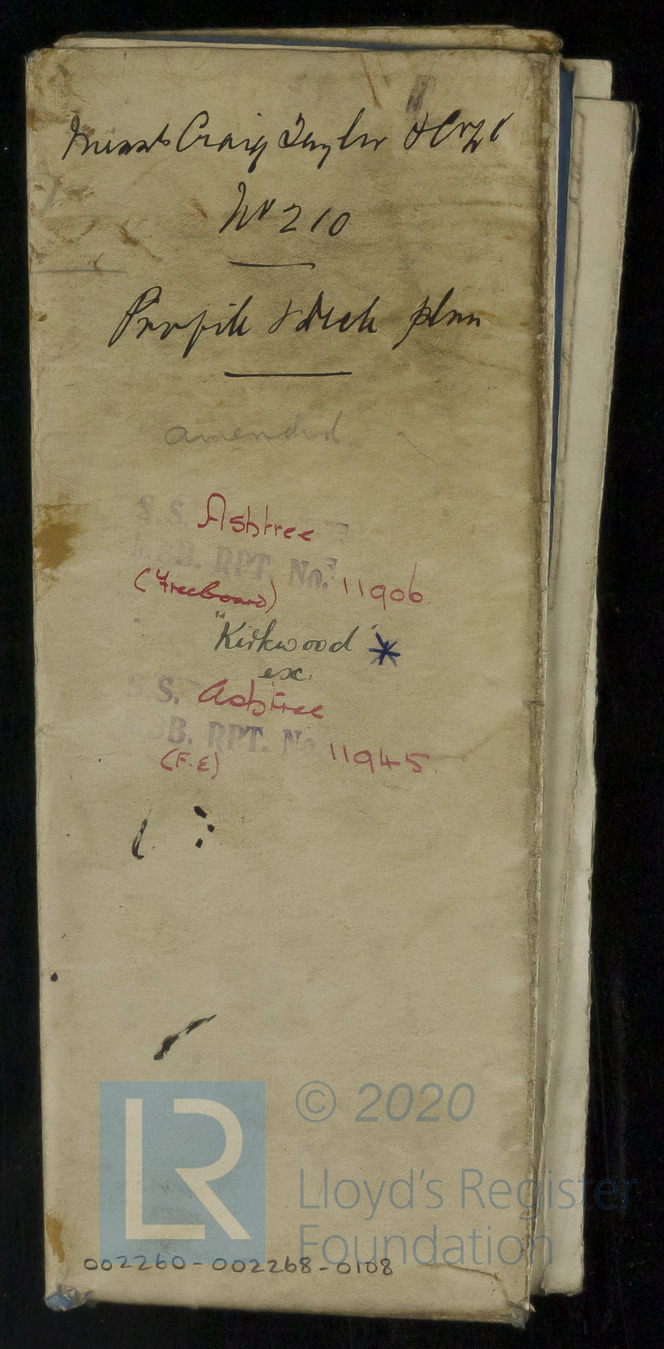 Messrs Craig Taylor & Co Ld
No 210
Profile & Deck plan
amended
S.S. Ashtree
RPT. No. 11906.
(Freeboard)
"Kirkwood" *
ex.
S.S. Ashtree
B. RPT. No 11945.
(F.E)
LR
© 2020
Lloyd's Register
Foundation
002260-002268-0108